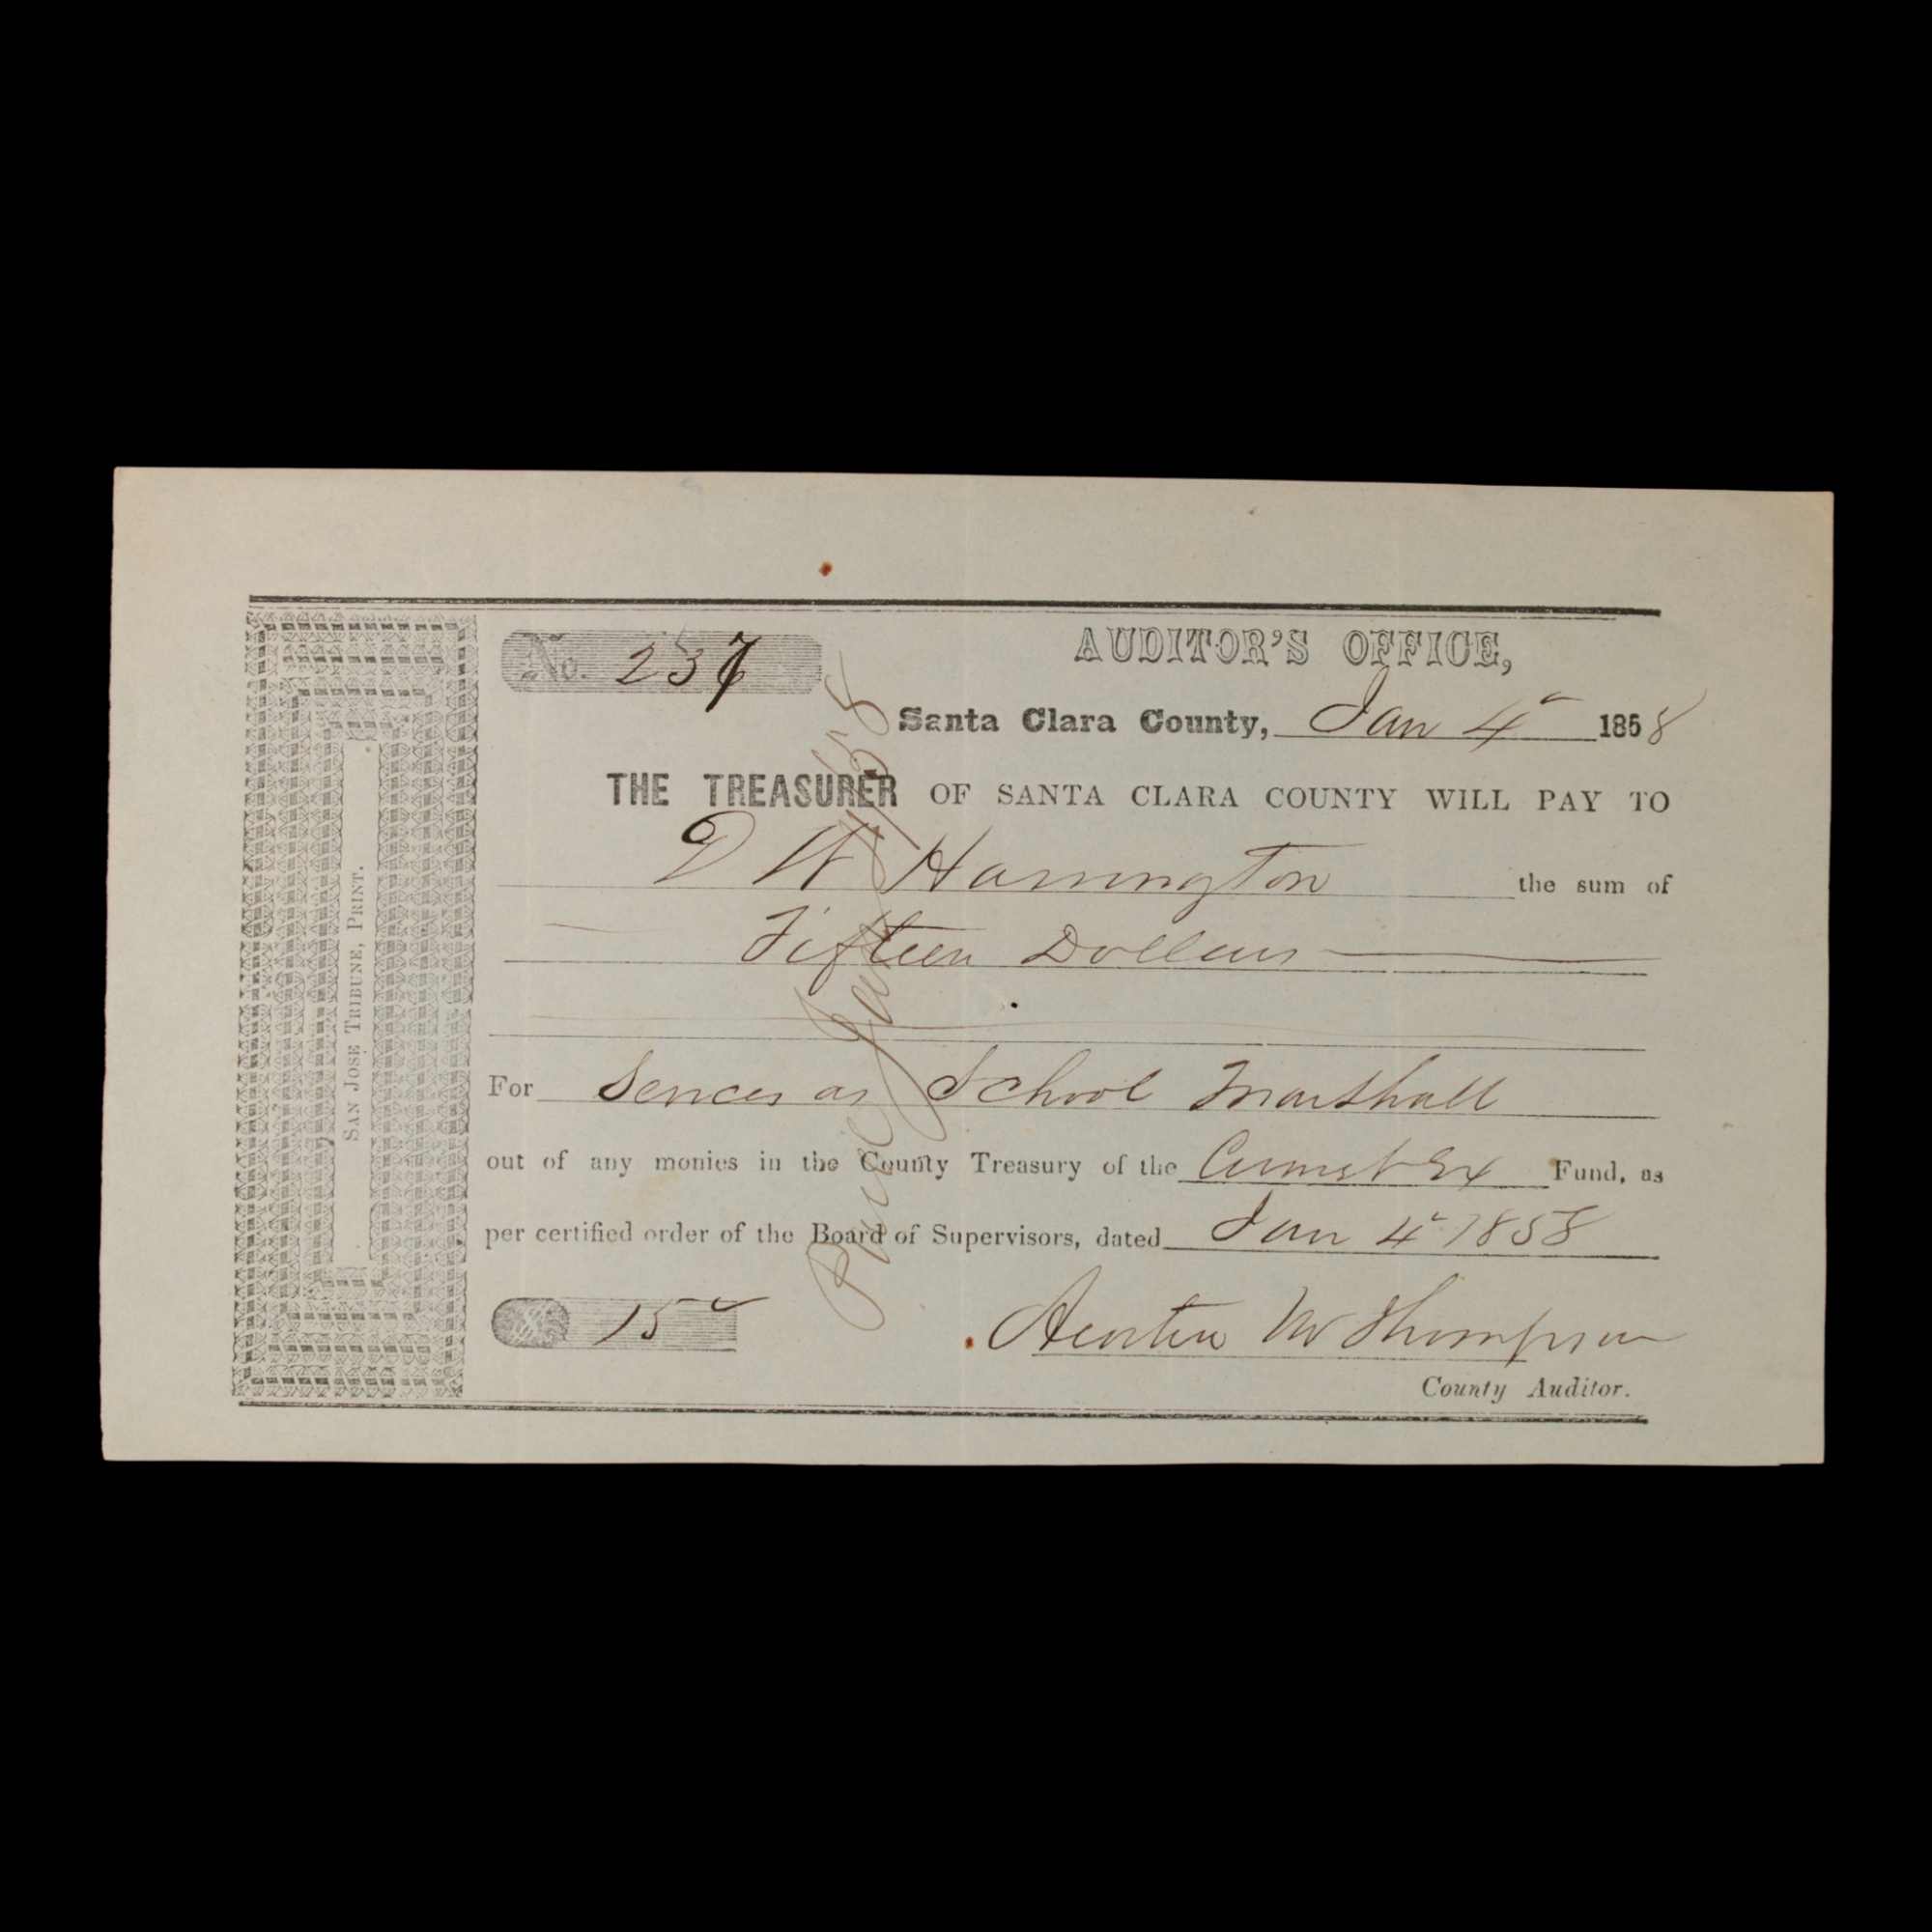 No. 237
AUDITOR'S OFFICE,
Santa Clara County, Jan 4 1858
THE TREASURER OF SANTA CLARA COUNTY WILL PAY TO
D W Harrington the sum of
Fifteen Dollars
For Services as School Marshall
out of any monies in the County Treasury of the Current Ex Fund, as
per certified order of the Board of Supervisors, dated Jan 4 1858
$ 15
W Thompson
County Auditor.
SAN JOSE TRIBUNE, PRINT.
Paid Jany 4/58